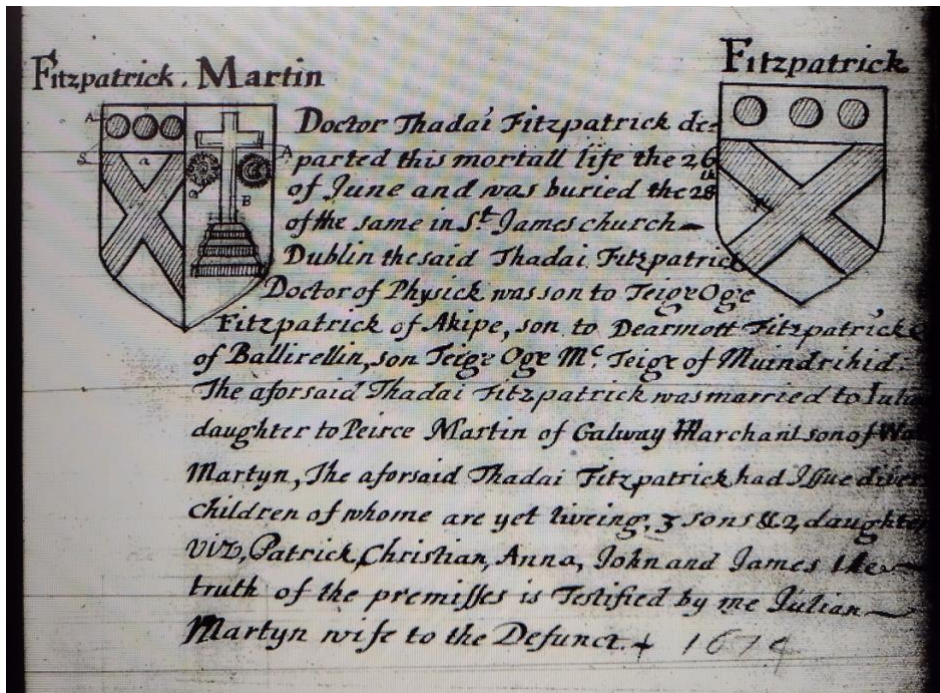 Fitzpatrick. Martin
Fitzpatrick
A
S
a
A
B
Doctor Thadai Fitzpatrick de=
parted this mortall life the 26
of June and was buried the 28th
of the same in St. James church
Dublin the said Thadai Fitzpatrick
Doctor of Physick was son to Teige Oge
Fitzpatrick of Akipe, son to Dearmott Fitzpatricke
of Ballirellin, son Teige Oge Mc. Teige of Muindrihid.
The aforsaid Thadai Fitzpatrick was married to
daughter to Peirce Martin of Galway Marchant son of
Martyn, The aforsaid Thadai Fitzpatrick had Issue
Children of whome are yet liveing, 3 sons & 2, daughters
viz, Patrick, Christian, Anna, John and James the
truth of the premisses is Testified by me Julian
Martyn wife to the Defunct. + 1674